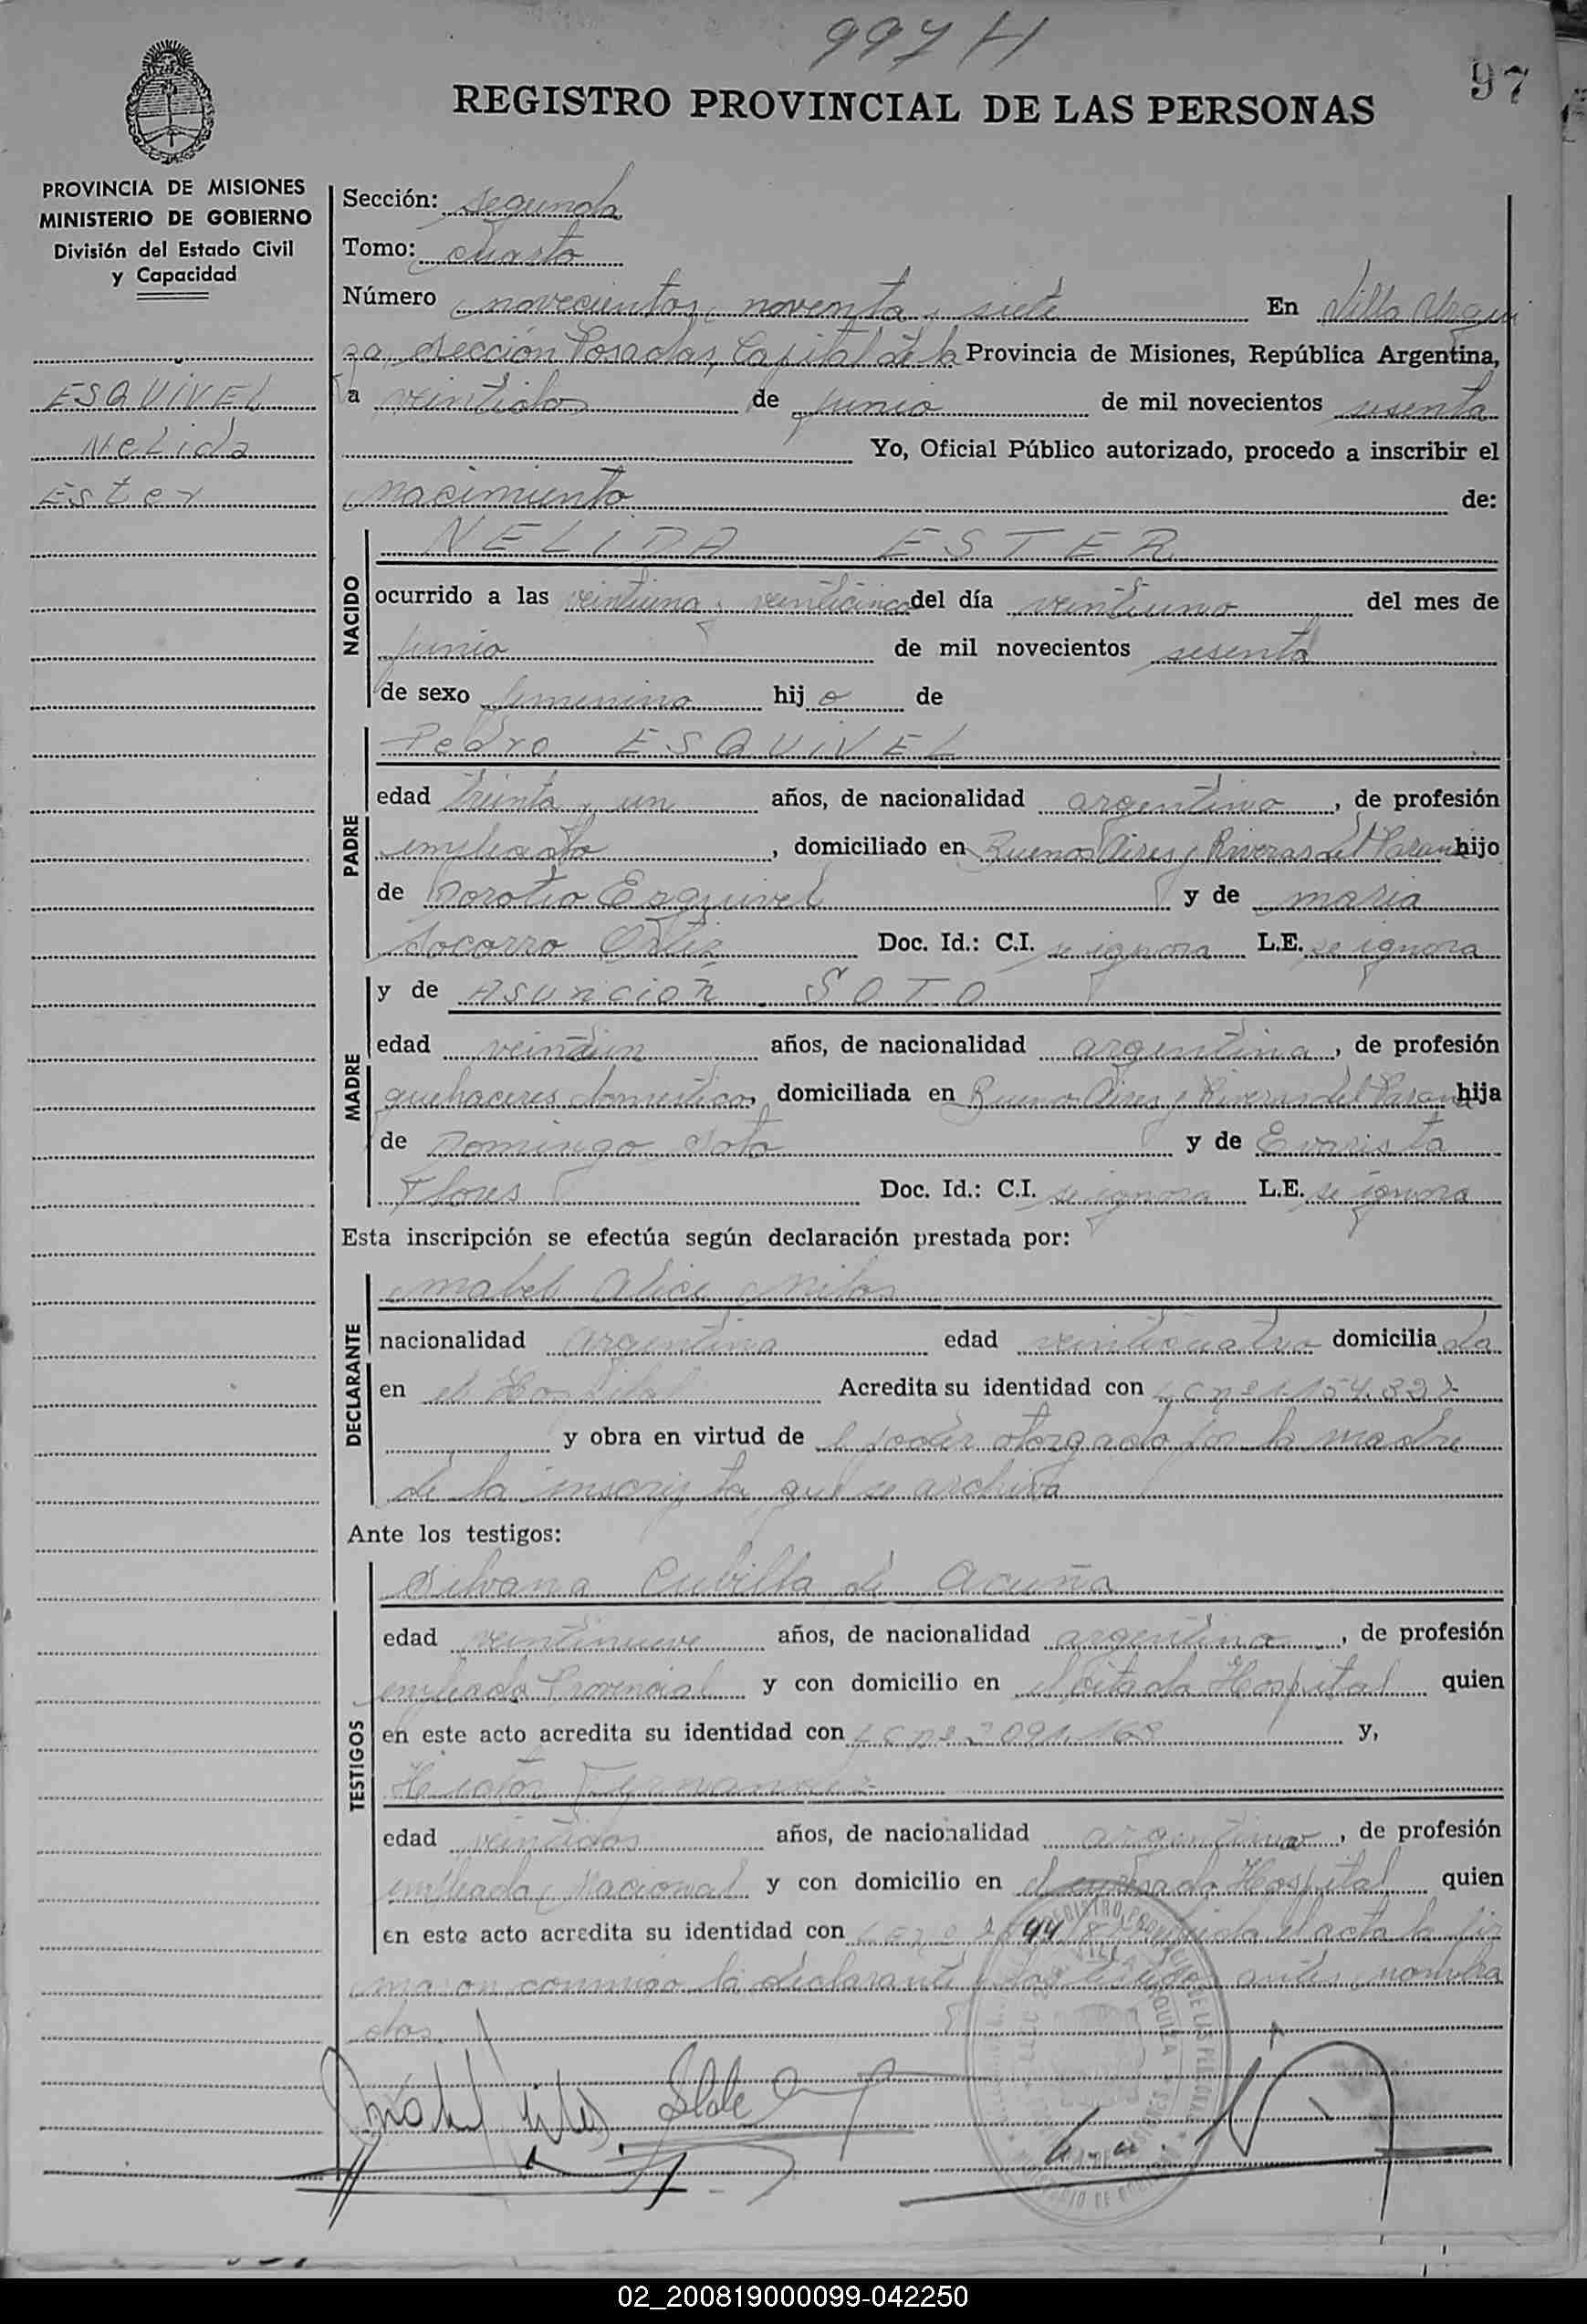 997 H
97
REGISTRO PROVINCIAL DE LAS PERSONAS
PROVINCIA DE MISIONES
MINISTERIO DE GOBIERNO
División del Estado Civil
y Capacidad
ESQUIVEL
Nelida
Ester
Sección: segunda
Tomo: cuarto
Número novecientos noventa y siete En Villa Urqui
za, Sección Posadas, Capital de la Provincia de Misiones, República Argentina,
a veintidos de junio de mil novecientos sesenta
Yo, Oficial Público autorizado, procedo a inscribir el
nacimiento de:
NACIDO
NELIDA ESTER
ocurrido a las veintiuna y veinticinco del día veintiuno del mes de
junio de mil novecientos sesenta
de sexo femenino hij a de
PADRE
Pedro ESQUIVEL
edad treinta y un años, de nacionalidad argentino, de profesión
empleado, domiciliado en Buenos Aires y Riveras del Parana hijo
de Doroteo Esquivel y de maria
Socorro Ortiz Doc. Id.: C.I. se ignora L.E. se ignora
MADRE
y de Asunción SOTO
edad veintiun años, de nacionalidad argentina, de profesión
quehaceres domesticos, domiciliada en Buenos Aires y Riveras del Parana hija
de Domingo Soto y de Evarista
Flores Doc. Id.: C.I. se ignora L.E. se ignora
Esta inscripción se efectúa según declaración prestada por:
DECLARANTE
Mabel Alice
nacionalidad argentina edad veinticuatro domicilia da
en el Hospital Acredita su identidad con LC nº 1.154.327
y obra en virtud de el poder otorgado por la madre
de la inscripta que se archiva
Ante los testigos:
TESTIGOS
Silvana Cubilla de Acuña
edad veintinueve años, de nacionalidad argentina, de profesión
empleada Provincial y con domicilio en el citado Hospital quien
en este acto acredita su identidad con LC nº y,
edad veintidos años, de nacionalidad argentina, de profesión
empleada Nacional y con domicilio en el expresado Hospital quien
en este acto acredita su identidad con leida el acta la fir
maron conmigo la declarante y los testigos antes nombra
dos.
02_200819000099-042250